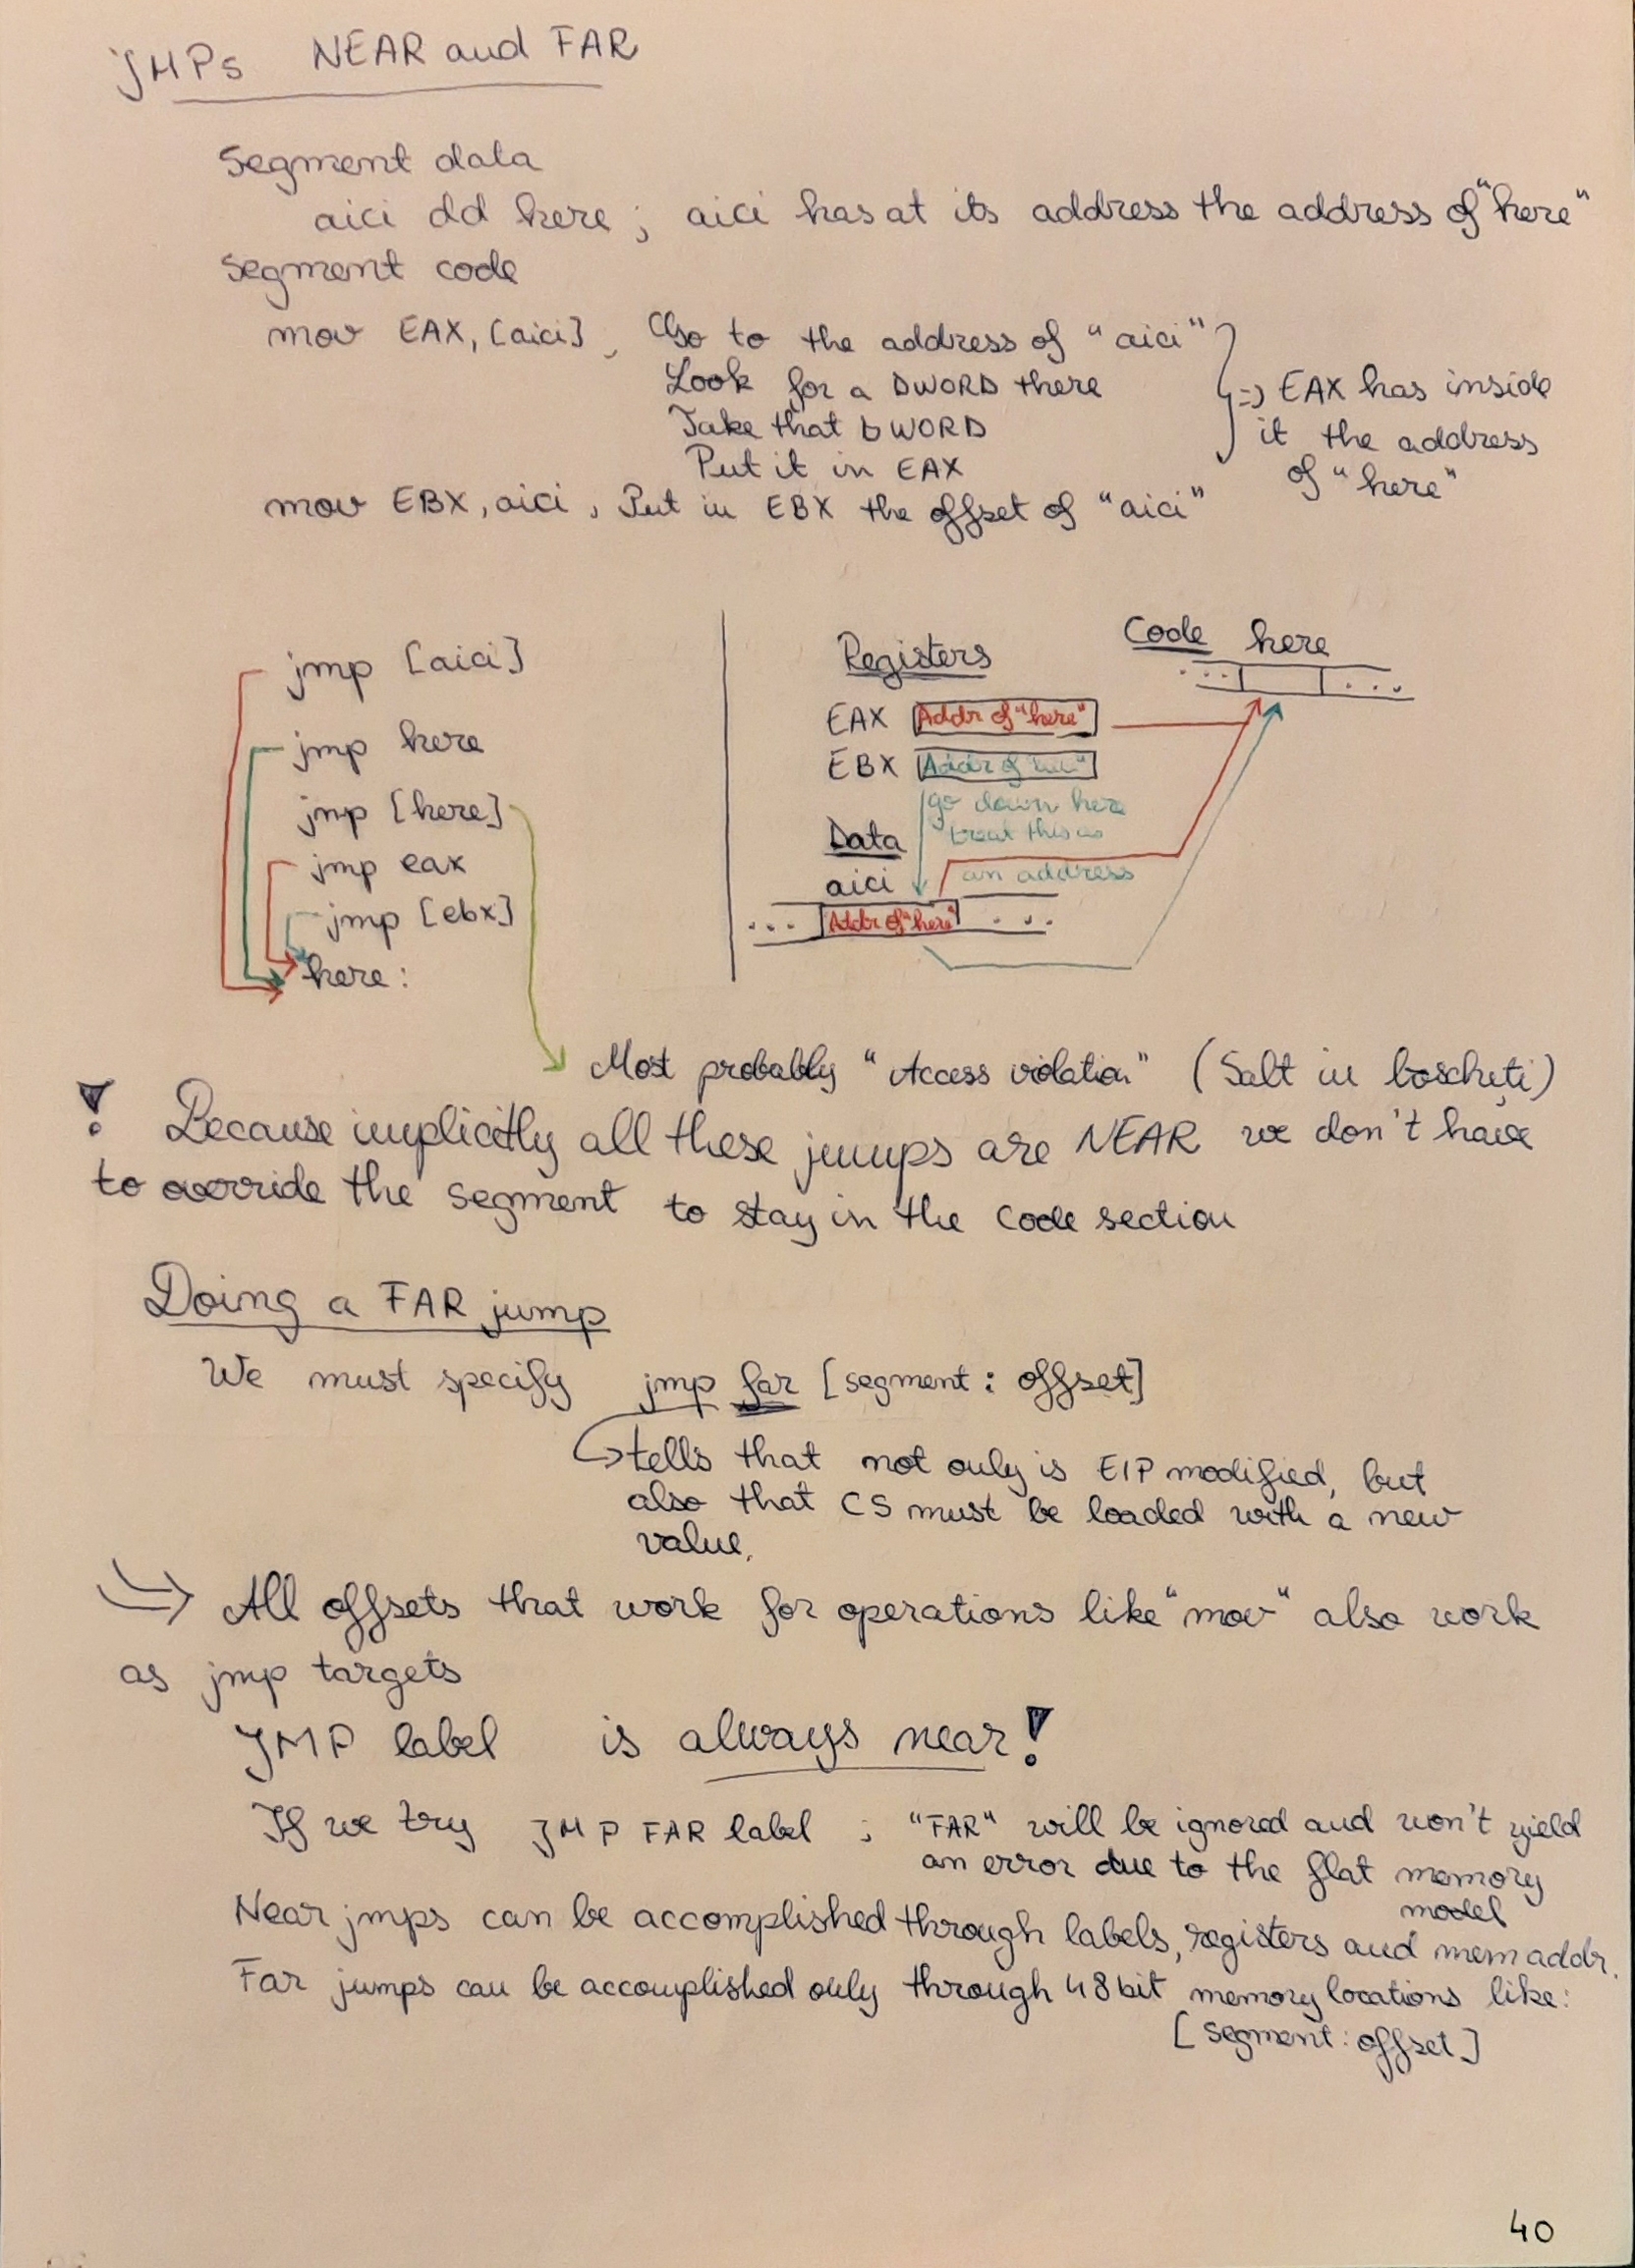 JMPs NEAR and FAR
Segment data
aici dd here ; aici has at its address the address of "here"
segment code
mov EAX, [aici] ; Go to the address of "aici"
Look for a DWORD there
Take that DWORD
Put it in EAX
=> EAX has inside
it the address
of "here"
mov EBX, aici ; Put in EBX the offset of "aici"
jmp [aici]
jmp here
jmp [here]
jmp eax
jmp [ebx]
here :
Registers
Code here
... ...
EAX Addr of "here"
EBX Addr of
go down here
treat this as
an address
Data
aici
... Addr of "here" ...
Most probably "Access violation" (Salt in boscheți)
! Because implicitly all these jumps are NEAR we don't have
to override the segment to stay in the code section
Doing a FAR jump
We must specify jmp far [segment : offset]
tells that not only is EIP modified, but
also that CS must be loaded with a new
value.
All offsets that work for operations like "mov" also work
as jmp targets
JMP label is always near!
If we try JMP FAR label ; "FAR" will be ignored and won't yield
an error due to the flat memory
model
Near jmps can be accomplished through labels, registers and mem addr.
Far jumps can be accomplished only through 48 bit memory locations like:
[segment : offset]
40